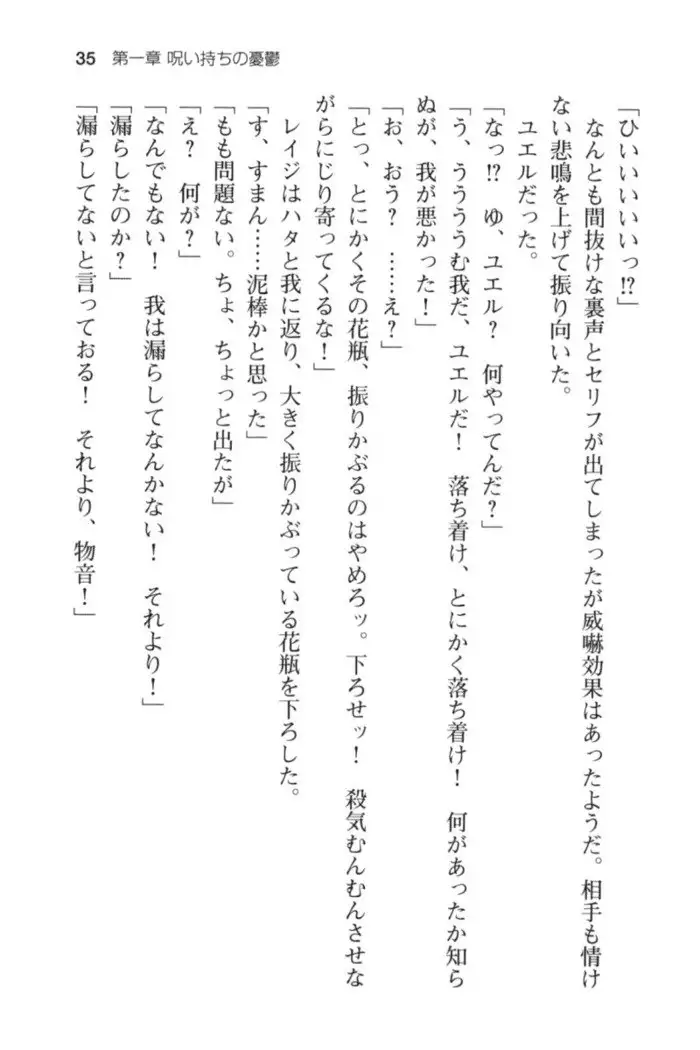 35 第一章 呪い持ちの憂鬱
「ひいいいいいっ!?」
　なんとも間抜けな裏声とセリフが出てしまったが威嚇効果はあったようだ。相手も情け
ない悲鳴を上げて振り向いた。
　ユエルだった。
「なっ!?　ゆ、ユエル？　何やってんだ？」
「う、うううむ我だ、ユエルだ！　落ち着け、とにかく落ち着け！　何があったか知ら
ぬが、我が悪かった！」
「お、おう？　……え？」
「とっ、とにかくその花瓶、振りかぶるのはやめろッ。下ろせッ！　殺気むんむんさせな
がらにじり寄ってくるな！」
　レイジはハタと我に返り、大きく振りかぶっている花瓶を下ろした。
「す、すまん……泥棒かと思った」
「もも問題ない。ちょ、ちょっと出たが」
「え？　何が？」
「なんでもない！　我は漏らしてなんかない！　それより！」
「漏らしたのか？」
「漏らしてないと言っておる！　それより、物音！」